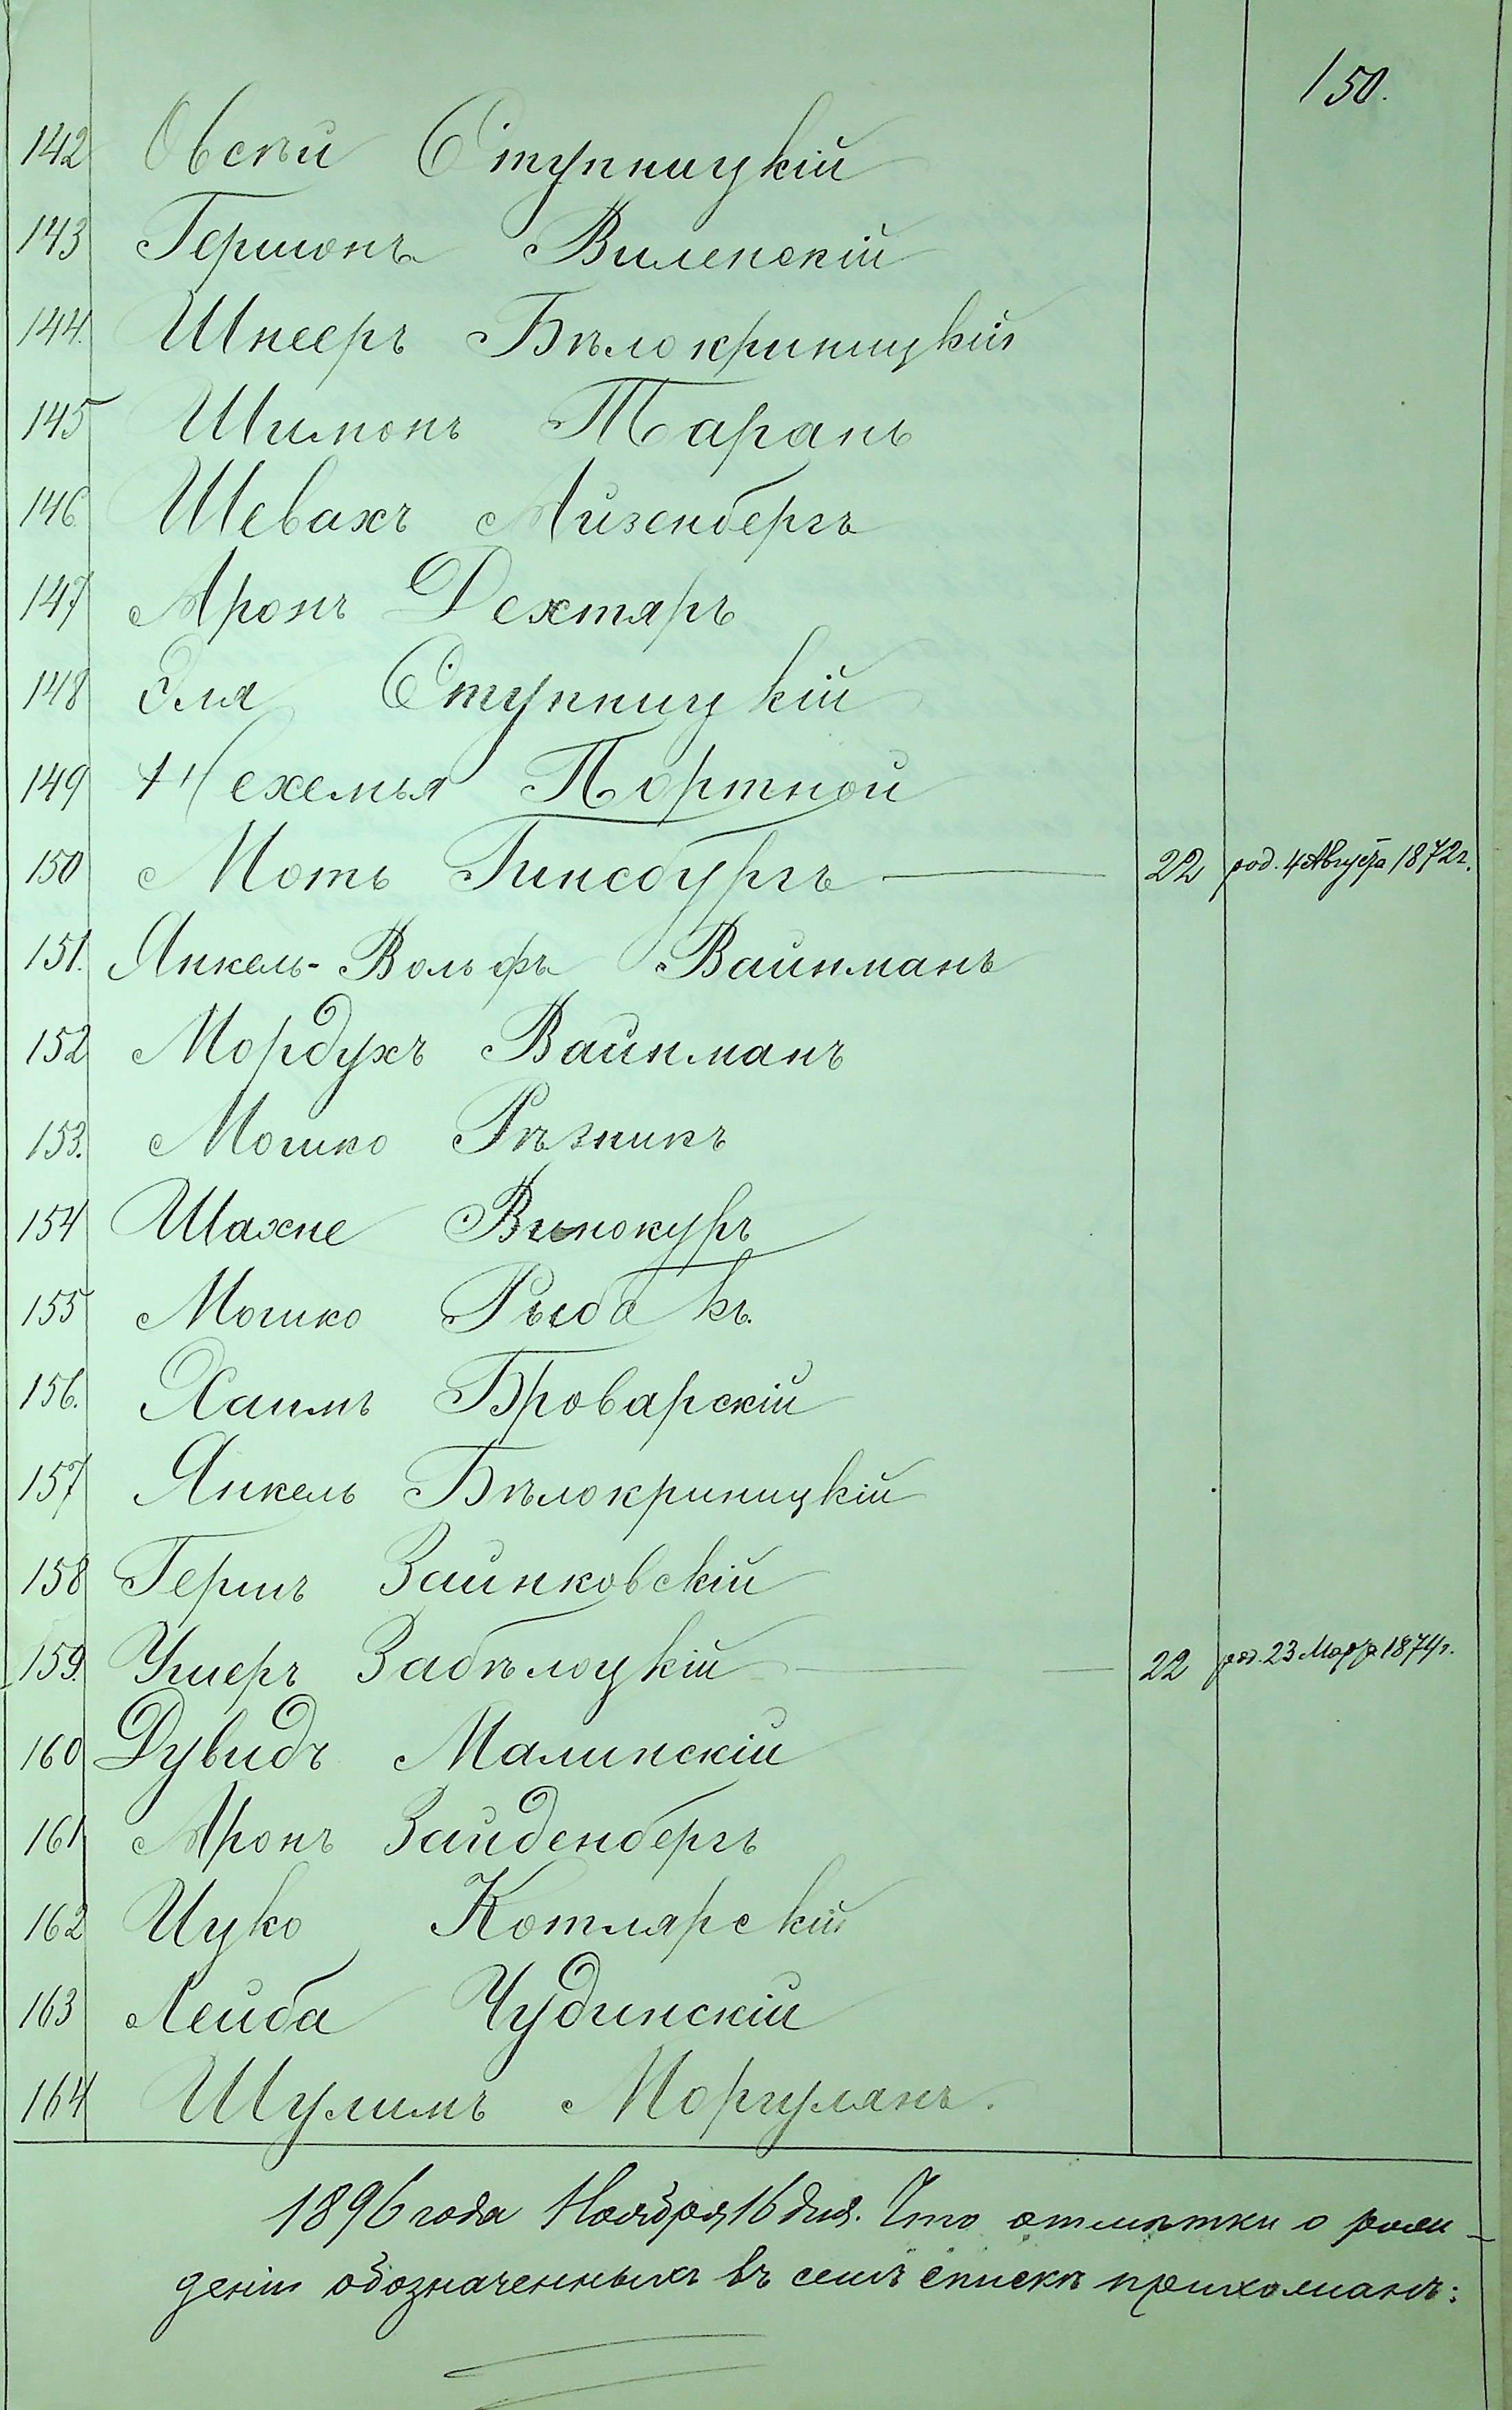 150.
142 Овсѣй Ступницкій
143 Гершонъ Виленскій
144. Шнееръ Бѣлокриницкій
145 Шимонъ Таранъ
146. Шевахъ Айзенбергъ
147 Аронъ Дехтяръ
148 Эля Ступницкій
149 Нехемья Портной
150 Моть Гинсбургъ 22 род. 4 Августа 1872 г.
151. Янкель-Вольфъ Вайнманъ
152 Мордухъ Вайнманъ
153. Мошко Рѣзникъ
154 Шахне Винокуръ
155 Мошко Рыбакъ.
156. Хаимъ Броварскій
157 Янкель Бѣлокриницкій
158 Гершъ Зайнковскій
159. Ушеръ Забѣлоцкій 22 род. 23 Марта 1874 г.
160 Дувидъ Малинскій
161 Аронъ Зайденбергъ
162 Ицко Котлярскій
163 Лейба Чудинскій
164 Шулимъ Моргулянъ.
1896 года Ноября 16 дня. Что отмѣтки о рож-
деніи обозначенныхъ въ семъ спискѣ прихожанъ: